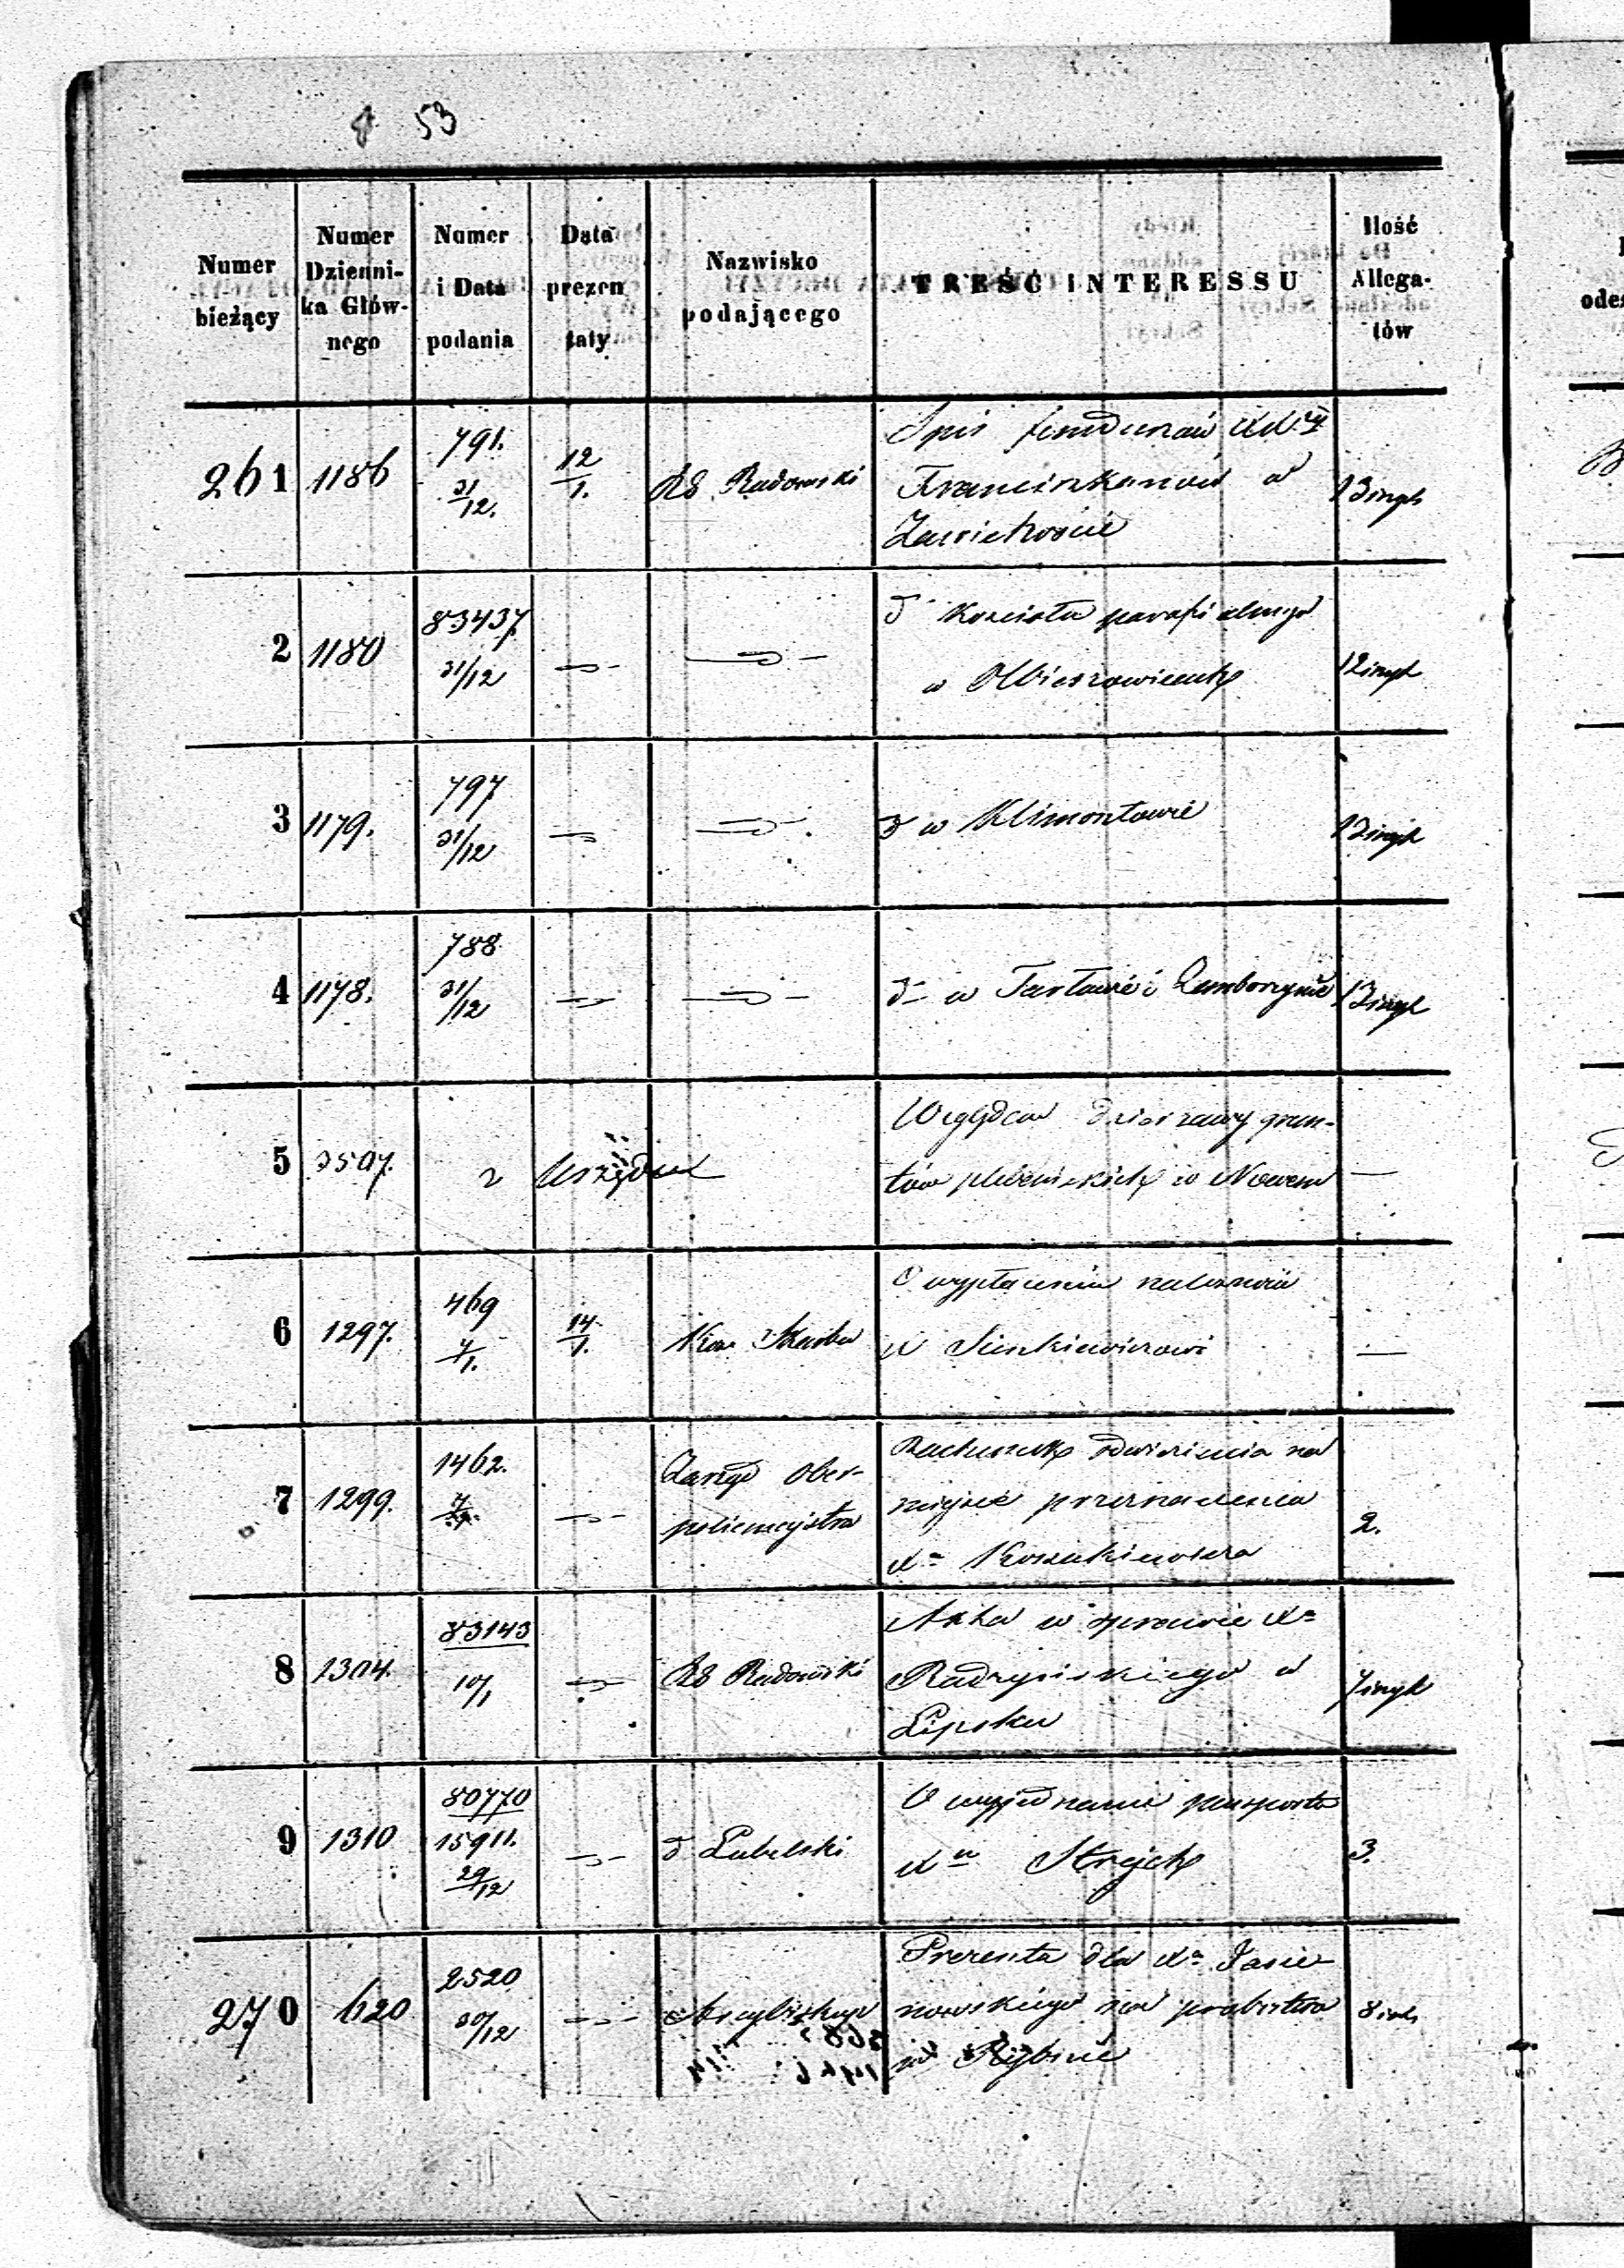 53
Numer bieżący
Numer Dzienni-ka Głów-nego
Numer i Data podania
Data prezen taty
Nazwisko podającego
TREŚĆ INTERESSU
Ilość Allega-tów
261 1186 791. 31/12. 12/1. RG Radomski
Spis funduszów
Franciszkanów w
Zawichoście
2 1180 83437 31/12
d° Kościoła parafialnego
w Olbierzowicach
3 1179. 797 31/12
d° w Klimontowie
4 1178. 788 31/12
d° w Tarłowie i
5 3507. z Urzędu
Względem dzierżawy grun-
tów plebańskich w Nowem —
6 1297. 469 4/1. 14/1. Kom. Skarbu
O wypłacenie należności
X Sienkiewiczowi —
7 1299. 1462.
Zarząd Ober-
policmajstra
Rachunek odwiezienia na
miejsce przeznaczenia
Xa 2.
8 1304. 83143 10/1 RG Radomski
Akta w sprawie Xa
Radzyńskiego w
Lipsku
9 1310 80770
15911.
29/12
d° Lubelski
O wyjednanie paszportu
Strejch 3.
270 620 2520 30/12 Arcybiskup
Prezenta dla Xa Jasie-
nowskiego na probostwo
w